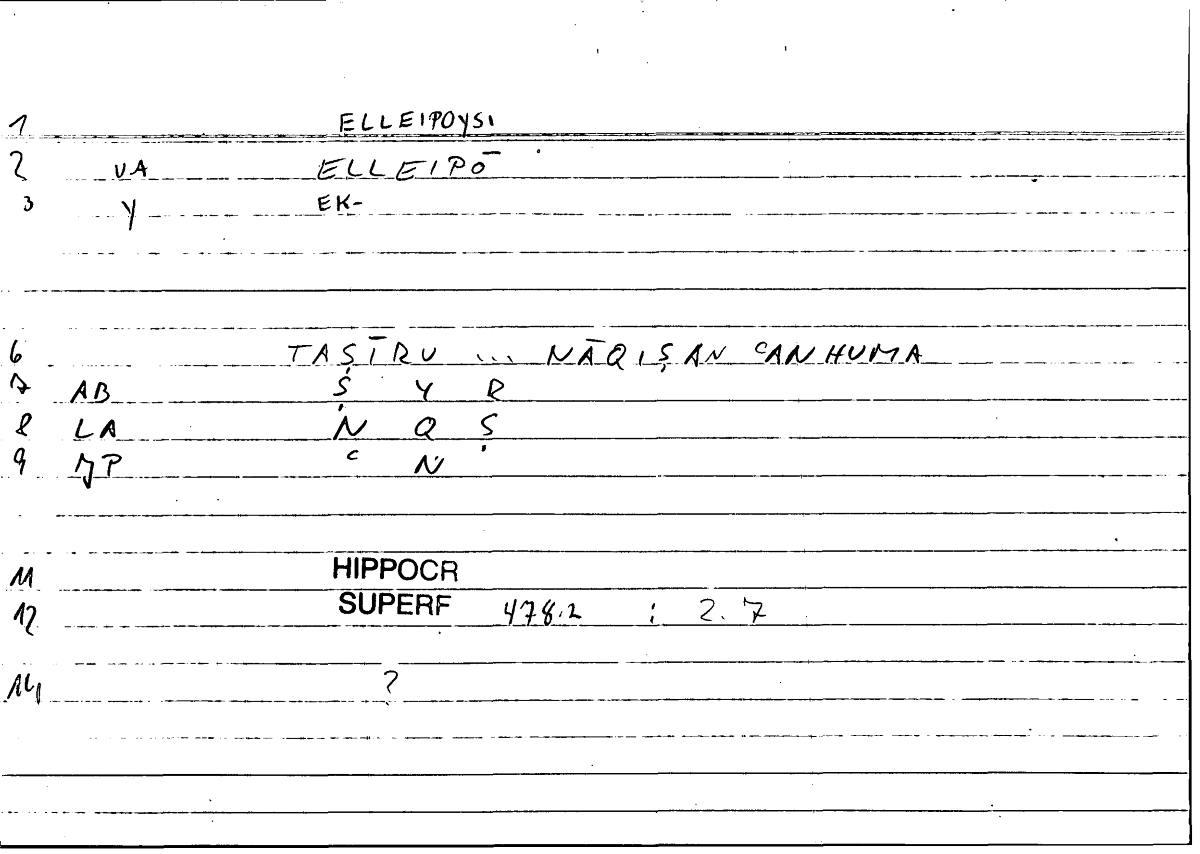 1 ELLEIPOYSI
2 VA ELLEIPŌ
3 Y EK-
6 TAṢĪRU ... NĀQIṢAN ʿANHUMA
7 AB Ṣ Y R
8 LA N Q Ṣ
9 ʿ N
11 HIPPOCR
12 SUPERF 478.2 : 2.7
14 ?